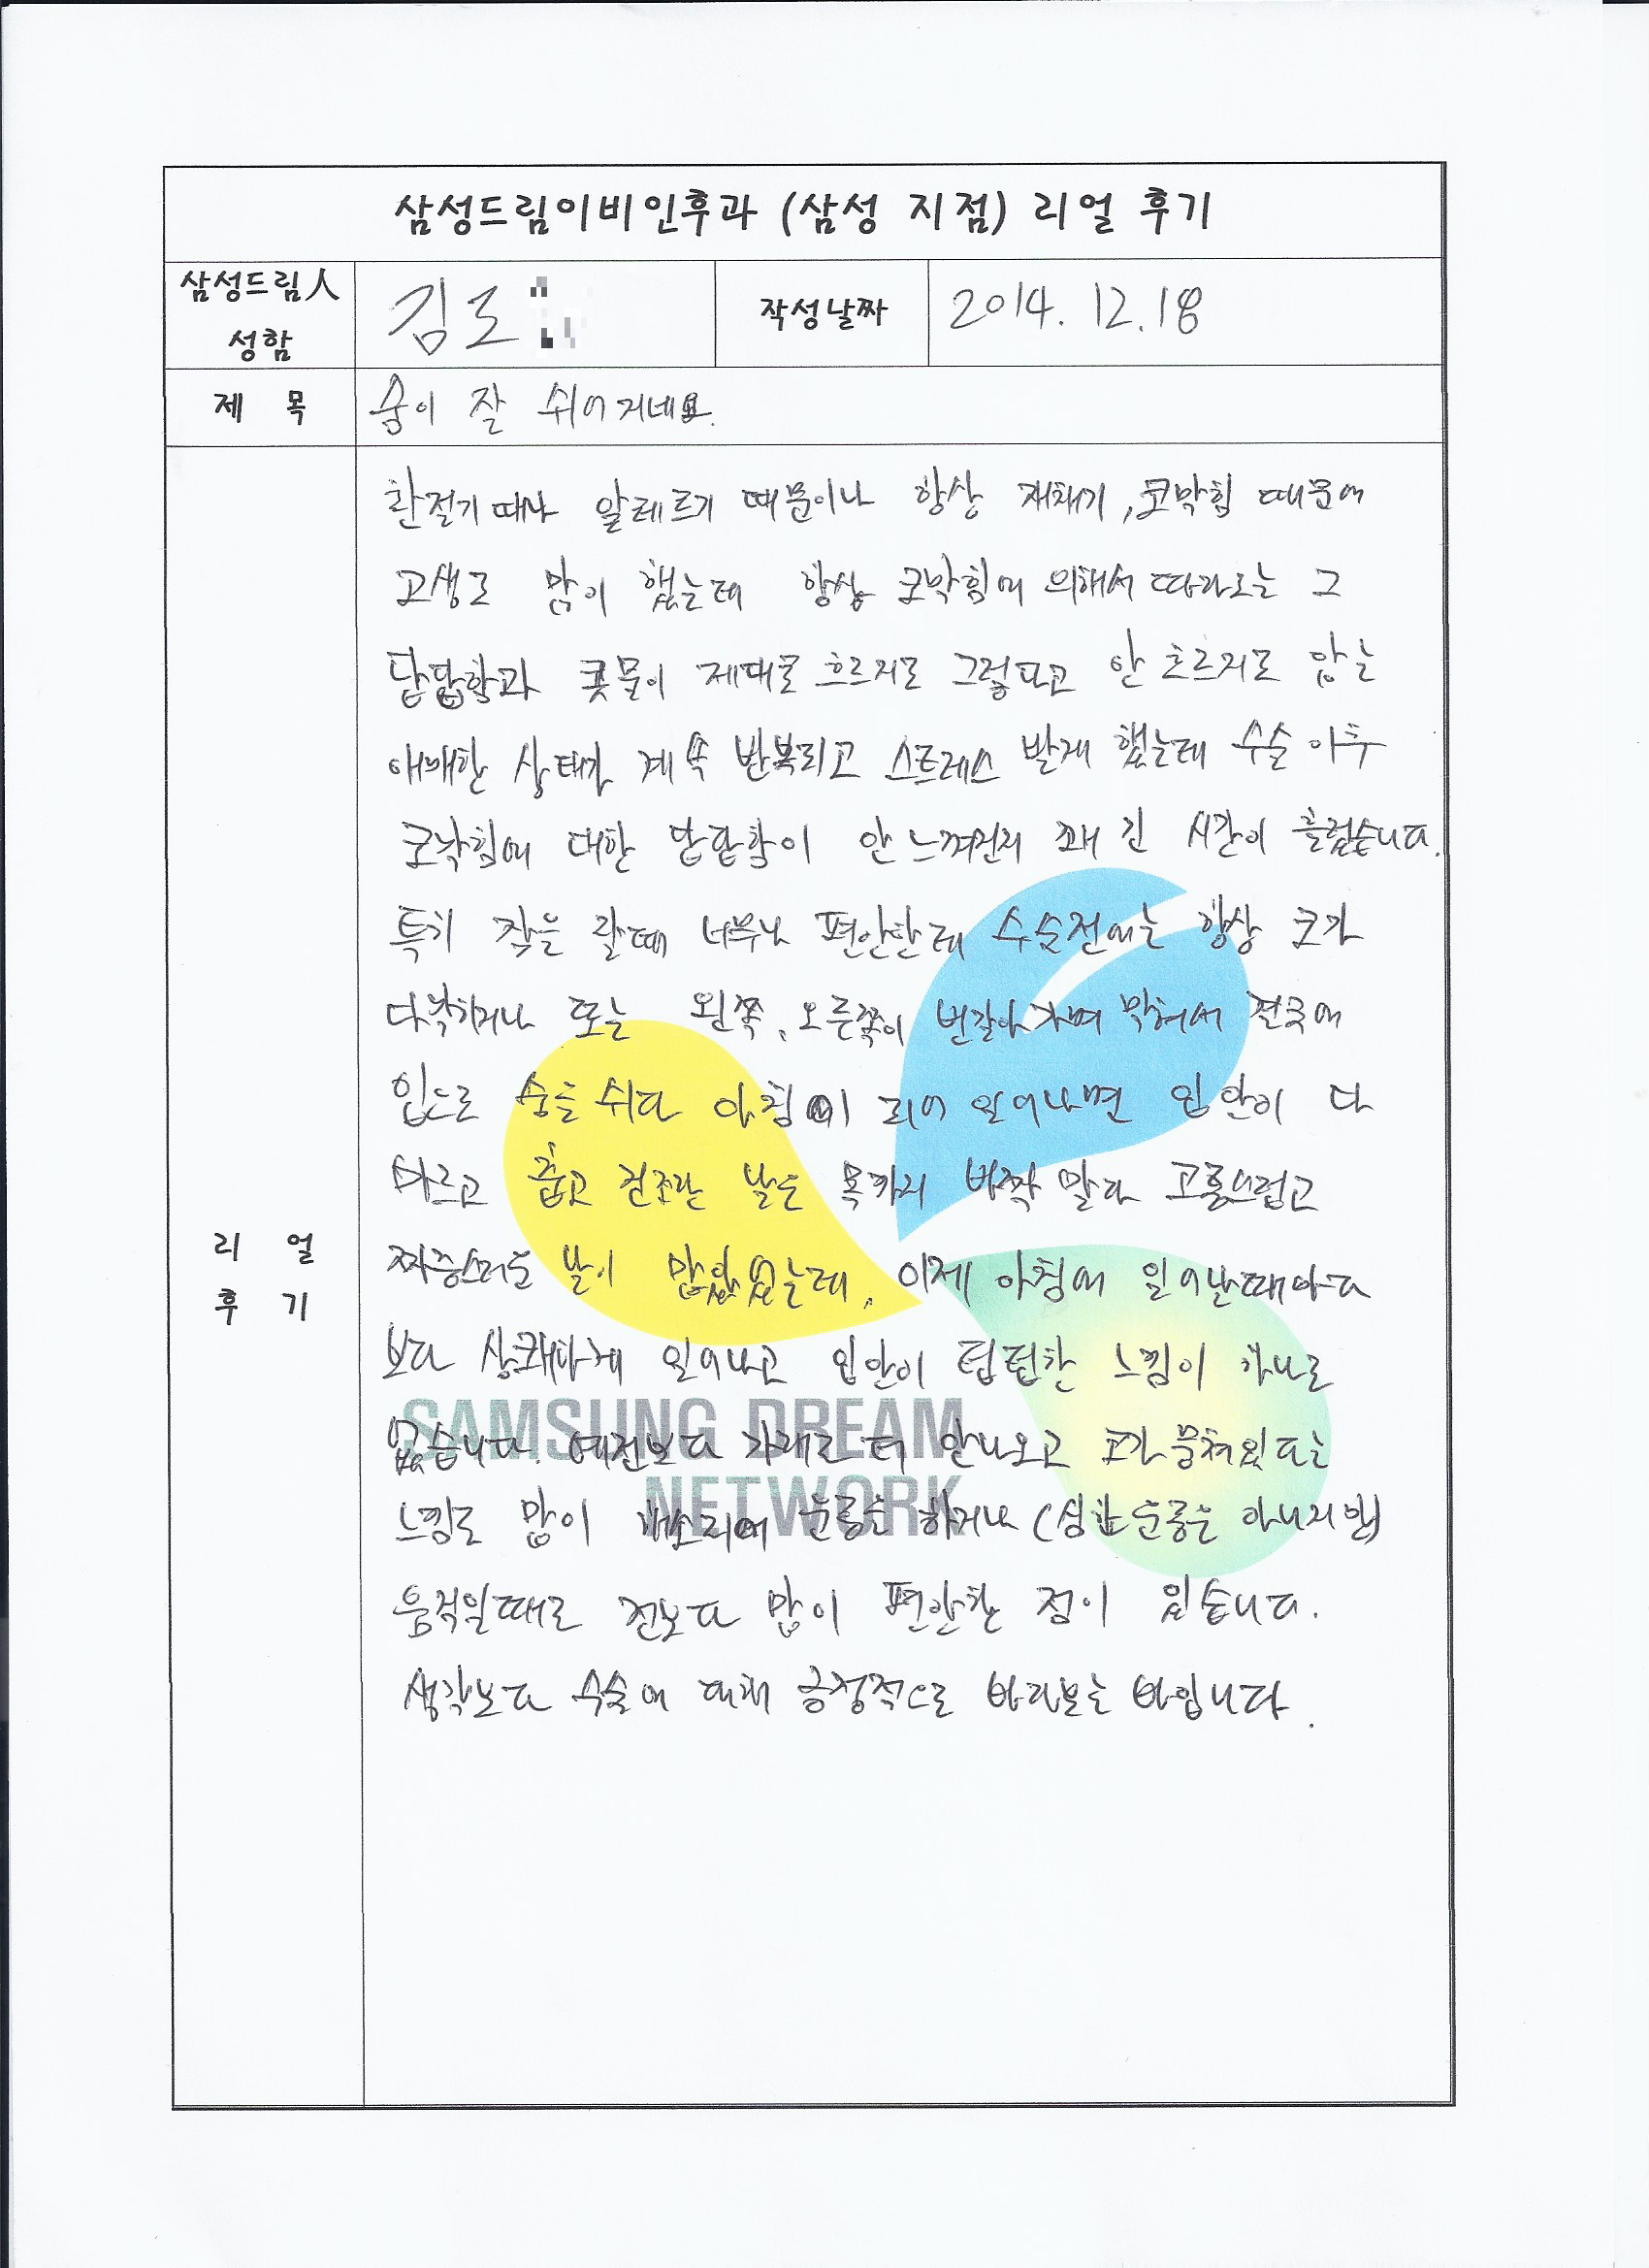 삼성드림이비인후과 (삼성 지점) 리얼 후기
삼성드림人
성함
김도
작성날짜
2014. 12. 18
제 목
숨이 잘 쉬어지네요.
환절기 때나 알레르기 때문이나 항상 재채기, 코막힘 때문에
고생도 많이 했는데 항상 코막힘에 의해서 따라오는 그
답답함과 콧물이 제대로 흐르지도 그렇다고 안 흐르지도 않는
애매한 상태가 계속 반복되고 스트레스 받게 했는데 수술 이후
코막힘에 대한 답답함이 안 느껴진지 꽤 긴 시간이 흘렀습니다.
특히 잠을 잘때 너무나 편안한데 수술전에는 항상 코가
다막히거나 또는 왼쪽, 오른쪽이 번갈아 가며 막혀서 결국에
입으로 숨을 쉬다 아침이 되어 일어나면 입 안이 다
마르고 춥고 건조한 날은 목까지 바짝 말라 고통스럽고
짜증스러운 날이 많았었는데, 이제 아침에 일어날때마다
보다 상쾌하게 일어나고 입안이 텁텁한 느낌이 하나도
없습니다. 예전보다 가래도 더 안나오고 코가 뭉쳐있다는
느낌도 많이 해소되어 운동을 하거나 (심한 운동은 아니지만)
움직일때도 전보다 많이 편안한 점이 있습니다.
생각보다 수술에 대해 긍정적으로 바라보는 바입니다.
리 얼
후 기
SAMSUNG DREAM
NETWORK